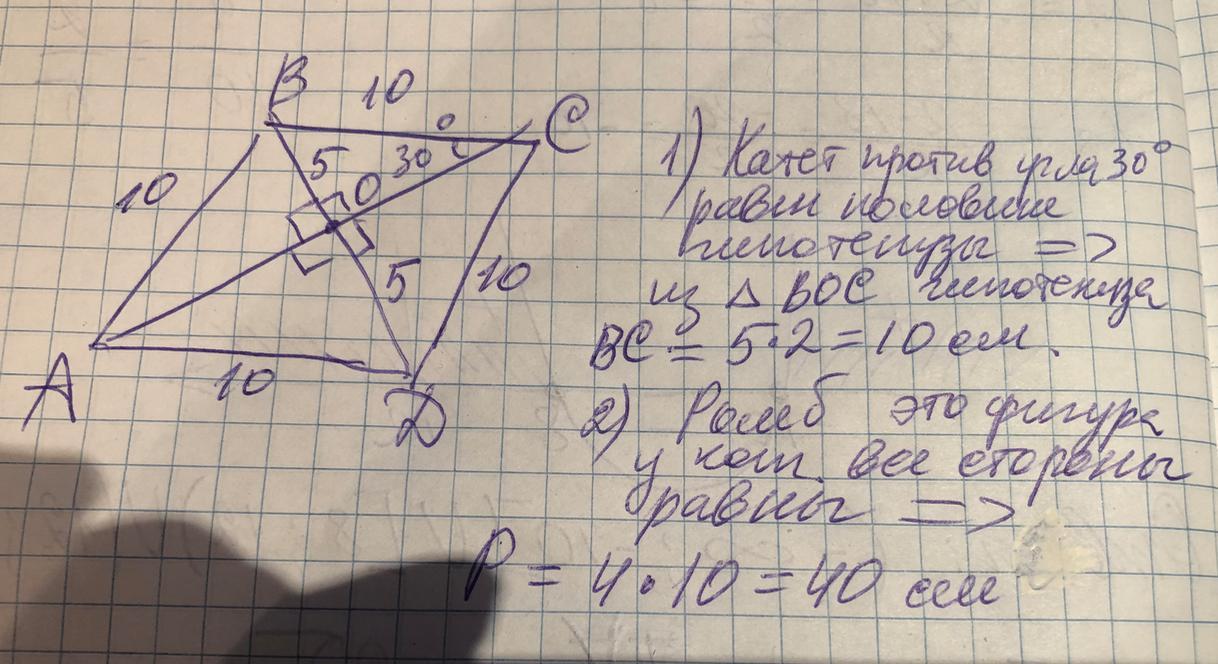 B
10
C
10
5
30°
O
5
10
A
10
D
1) Катет против угла 30°
равен половине
гипотенузы =>
из △ BOC гипотенуза
BC = 5·2 = 10 см.
2) Ромб это фигура
у кот. все стороны
равны =>
P = 4·10 = 40 см